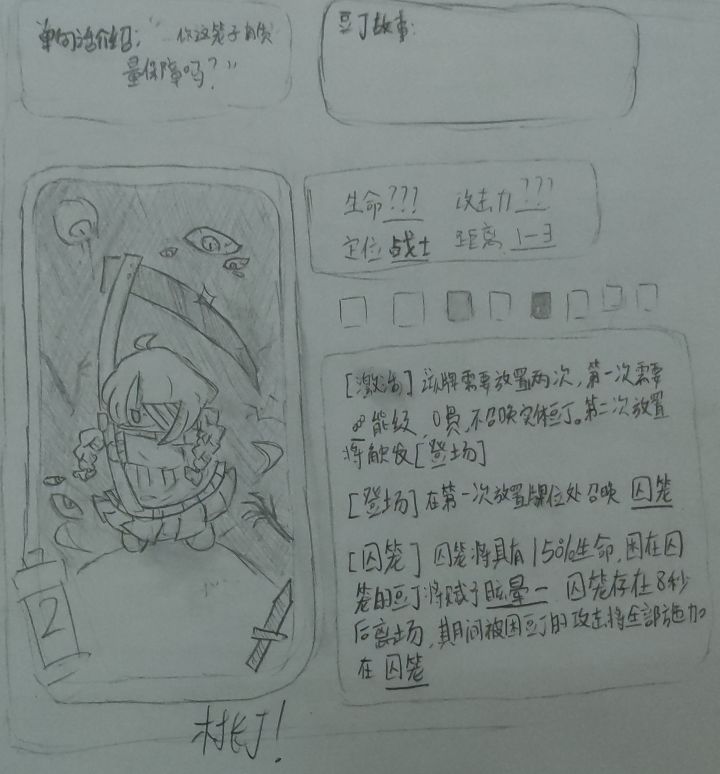 单句话介绍："你这笼子有质
量保障吗？"
豆丁故事：
生命 ??? 攻击力 ???
定位 战士 距离 1-3
[激活] 该牌需要放置两次，第一次需要
能级 0费，不召唤实体豆丁。第二次放置
将触发[登场]
[登场] 在第一次放置牌位处召唤 囚笼
[囚笼] 囚笼将具有150%生命，困在囚
笼的豆丁将赋予眩晕一 囚笼存在8秒
后离场，期间被困豆丁的攻击将全部施加
在 囚笼
2
村长丁！